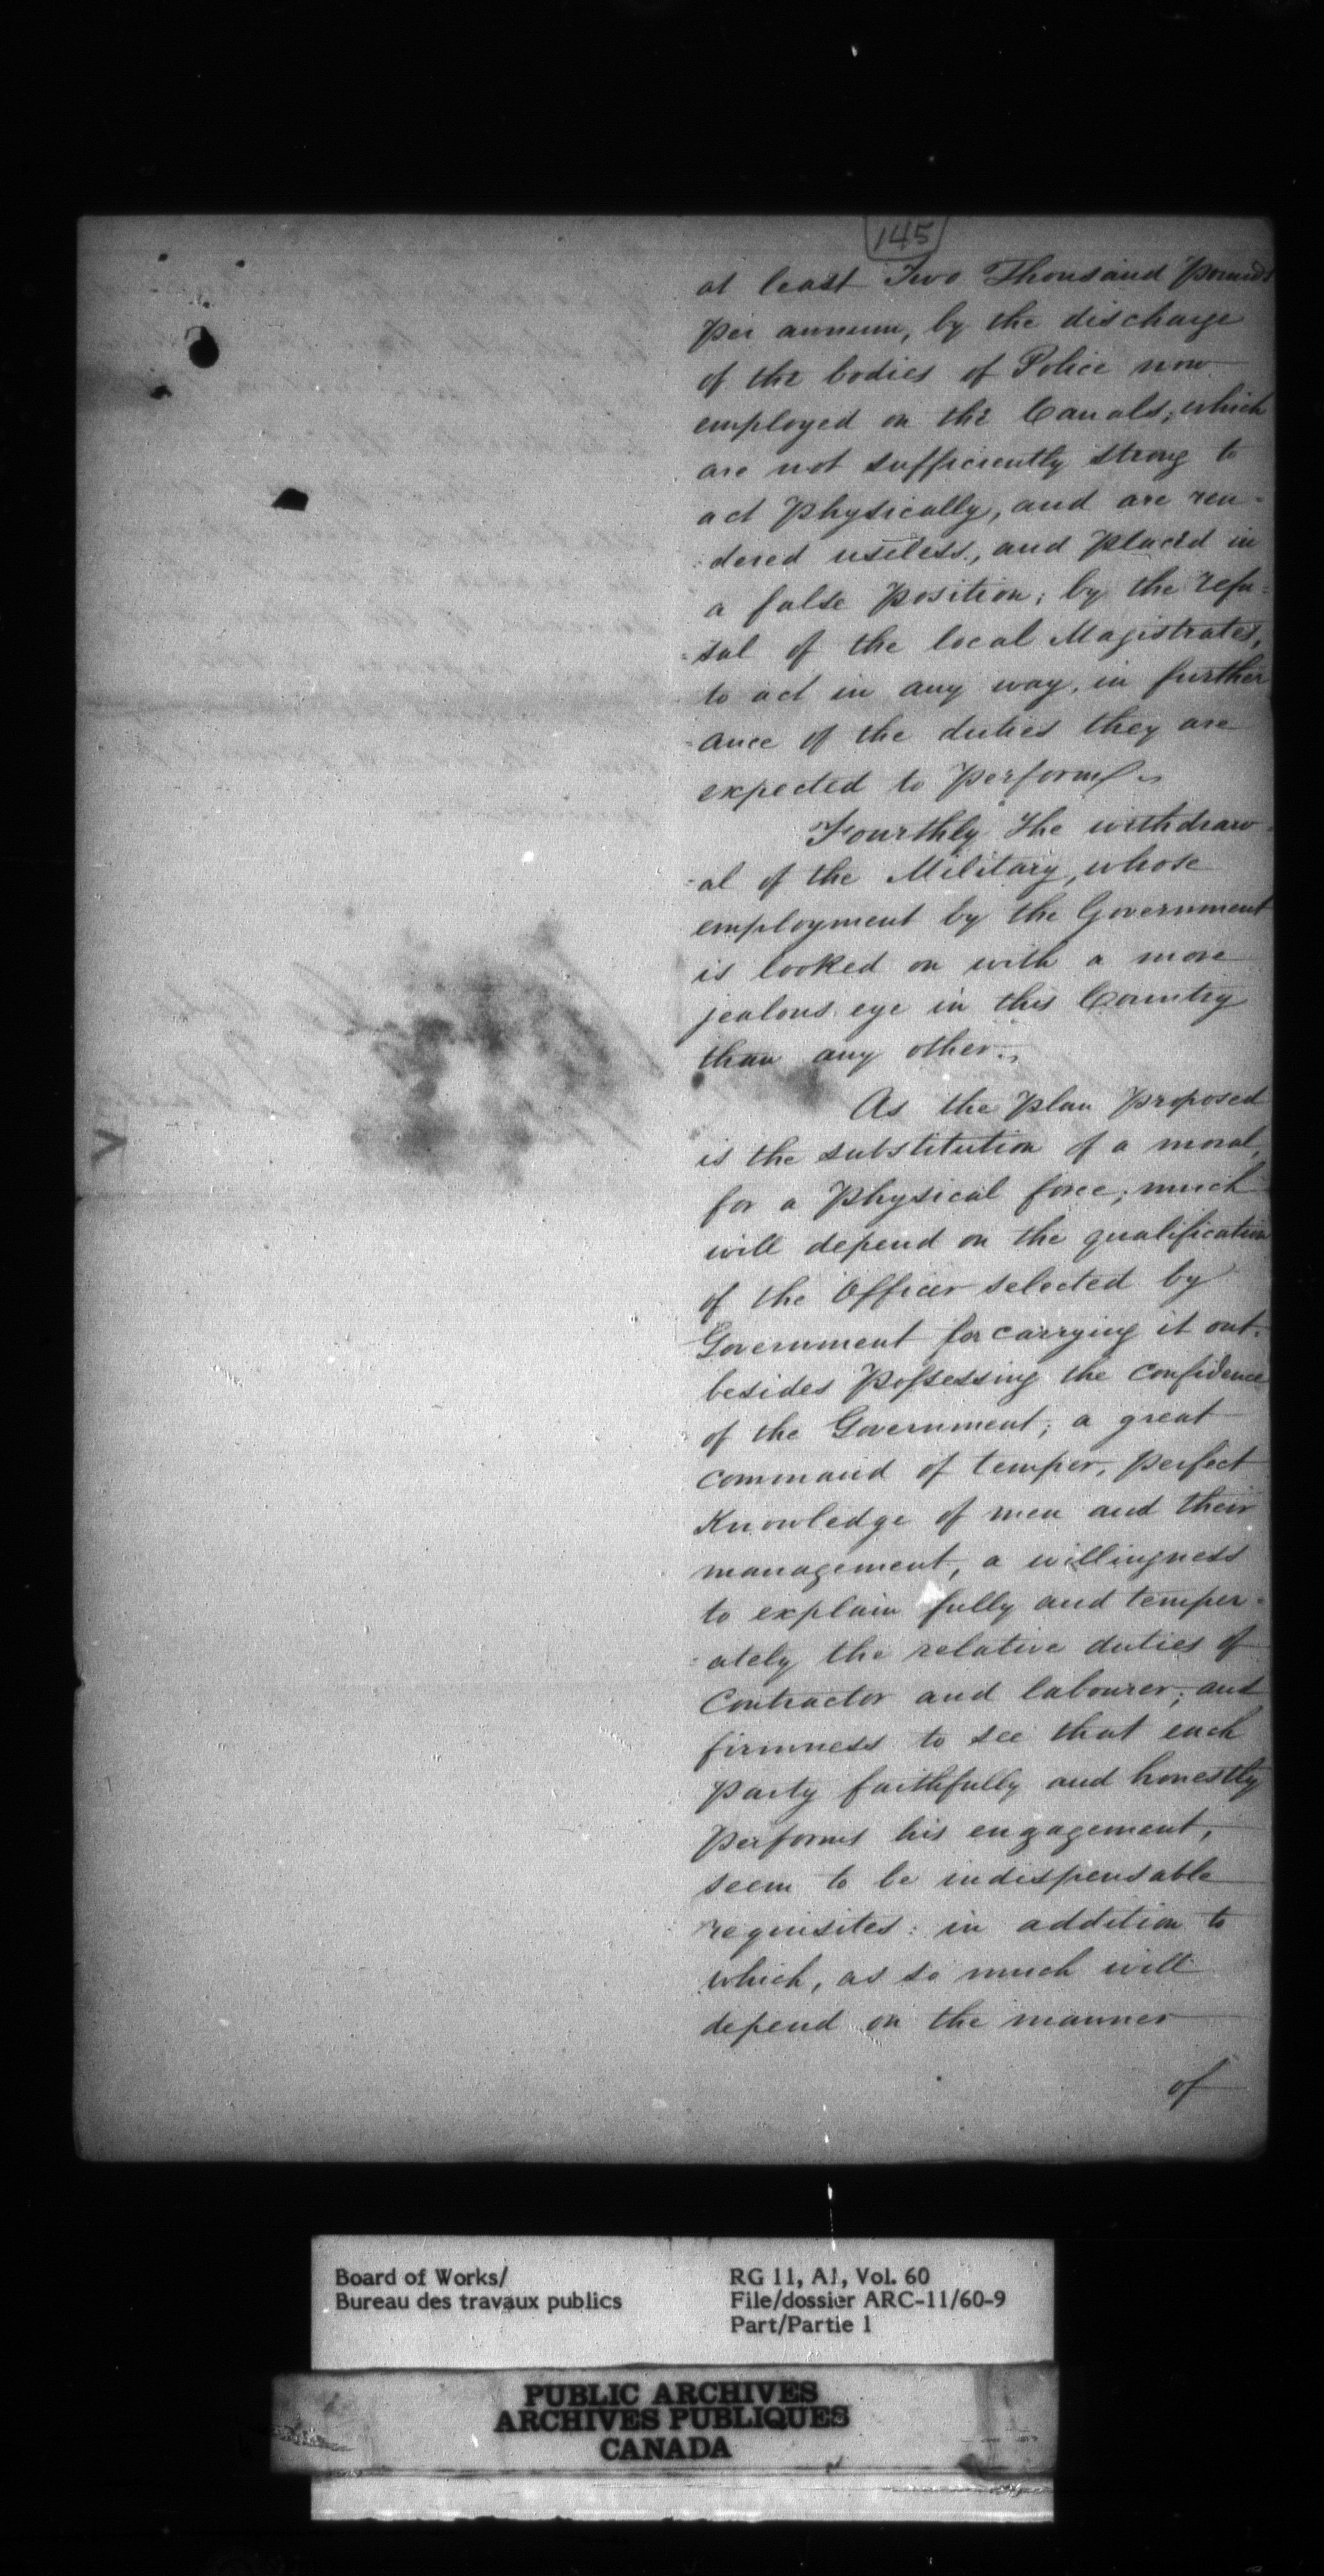 145
at least Two Thousand Pounds
Per annum, by the discharge
of the bodies of Police now
employed on the Canals; which
are not sufficiently strong to
act Physically, and are ren-
-dered useless, and Placed in
a false Position; by the refu-
-sal of the local Magistrates,
to act in any way, in further
-ance of the duties they are
expected to Perform.
Fourthly The withdraw-
-al of the Military, whose
employment by the Government
is looked on with a more
jealous eye in this Country
than any other.
As the Plan Proposed
is the substitution of a moral,
for a Physical force; much
will depend on the qualification
of the Officer selected by
Government for carrying it out.
besides Possessing the confidence
of the Government; a great
command of temper, Perfect
Knowledge of men and their
management, a willingness
to explain fully and temper-
-ately the relative duties of
Contractor and labourer; and
firmness to see that each
Party faithfully and honestly
Performs his engagement,
seem to be indispensable
requisites: in addition to
which, as so much will
depend on the manner
of
Board of Works/
Bureau des travaux publics
RG 11, A1, Vol. 60
File/dossier ARC-11/60-9
Part/Partie 1
PUBLIC ARCHIVES
ARCHIVES PUBLIQUES
CANADA